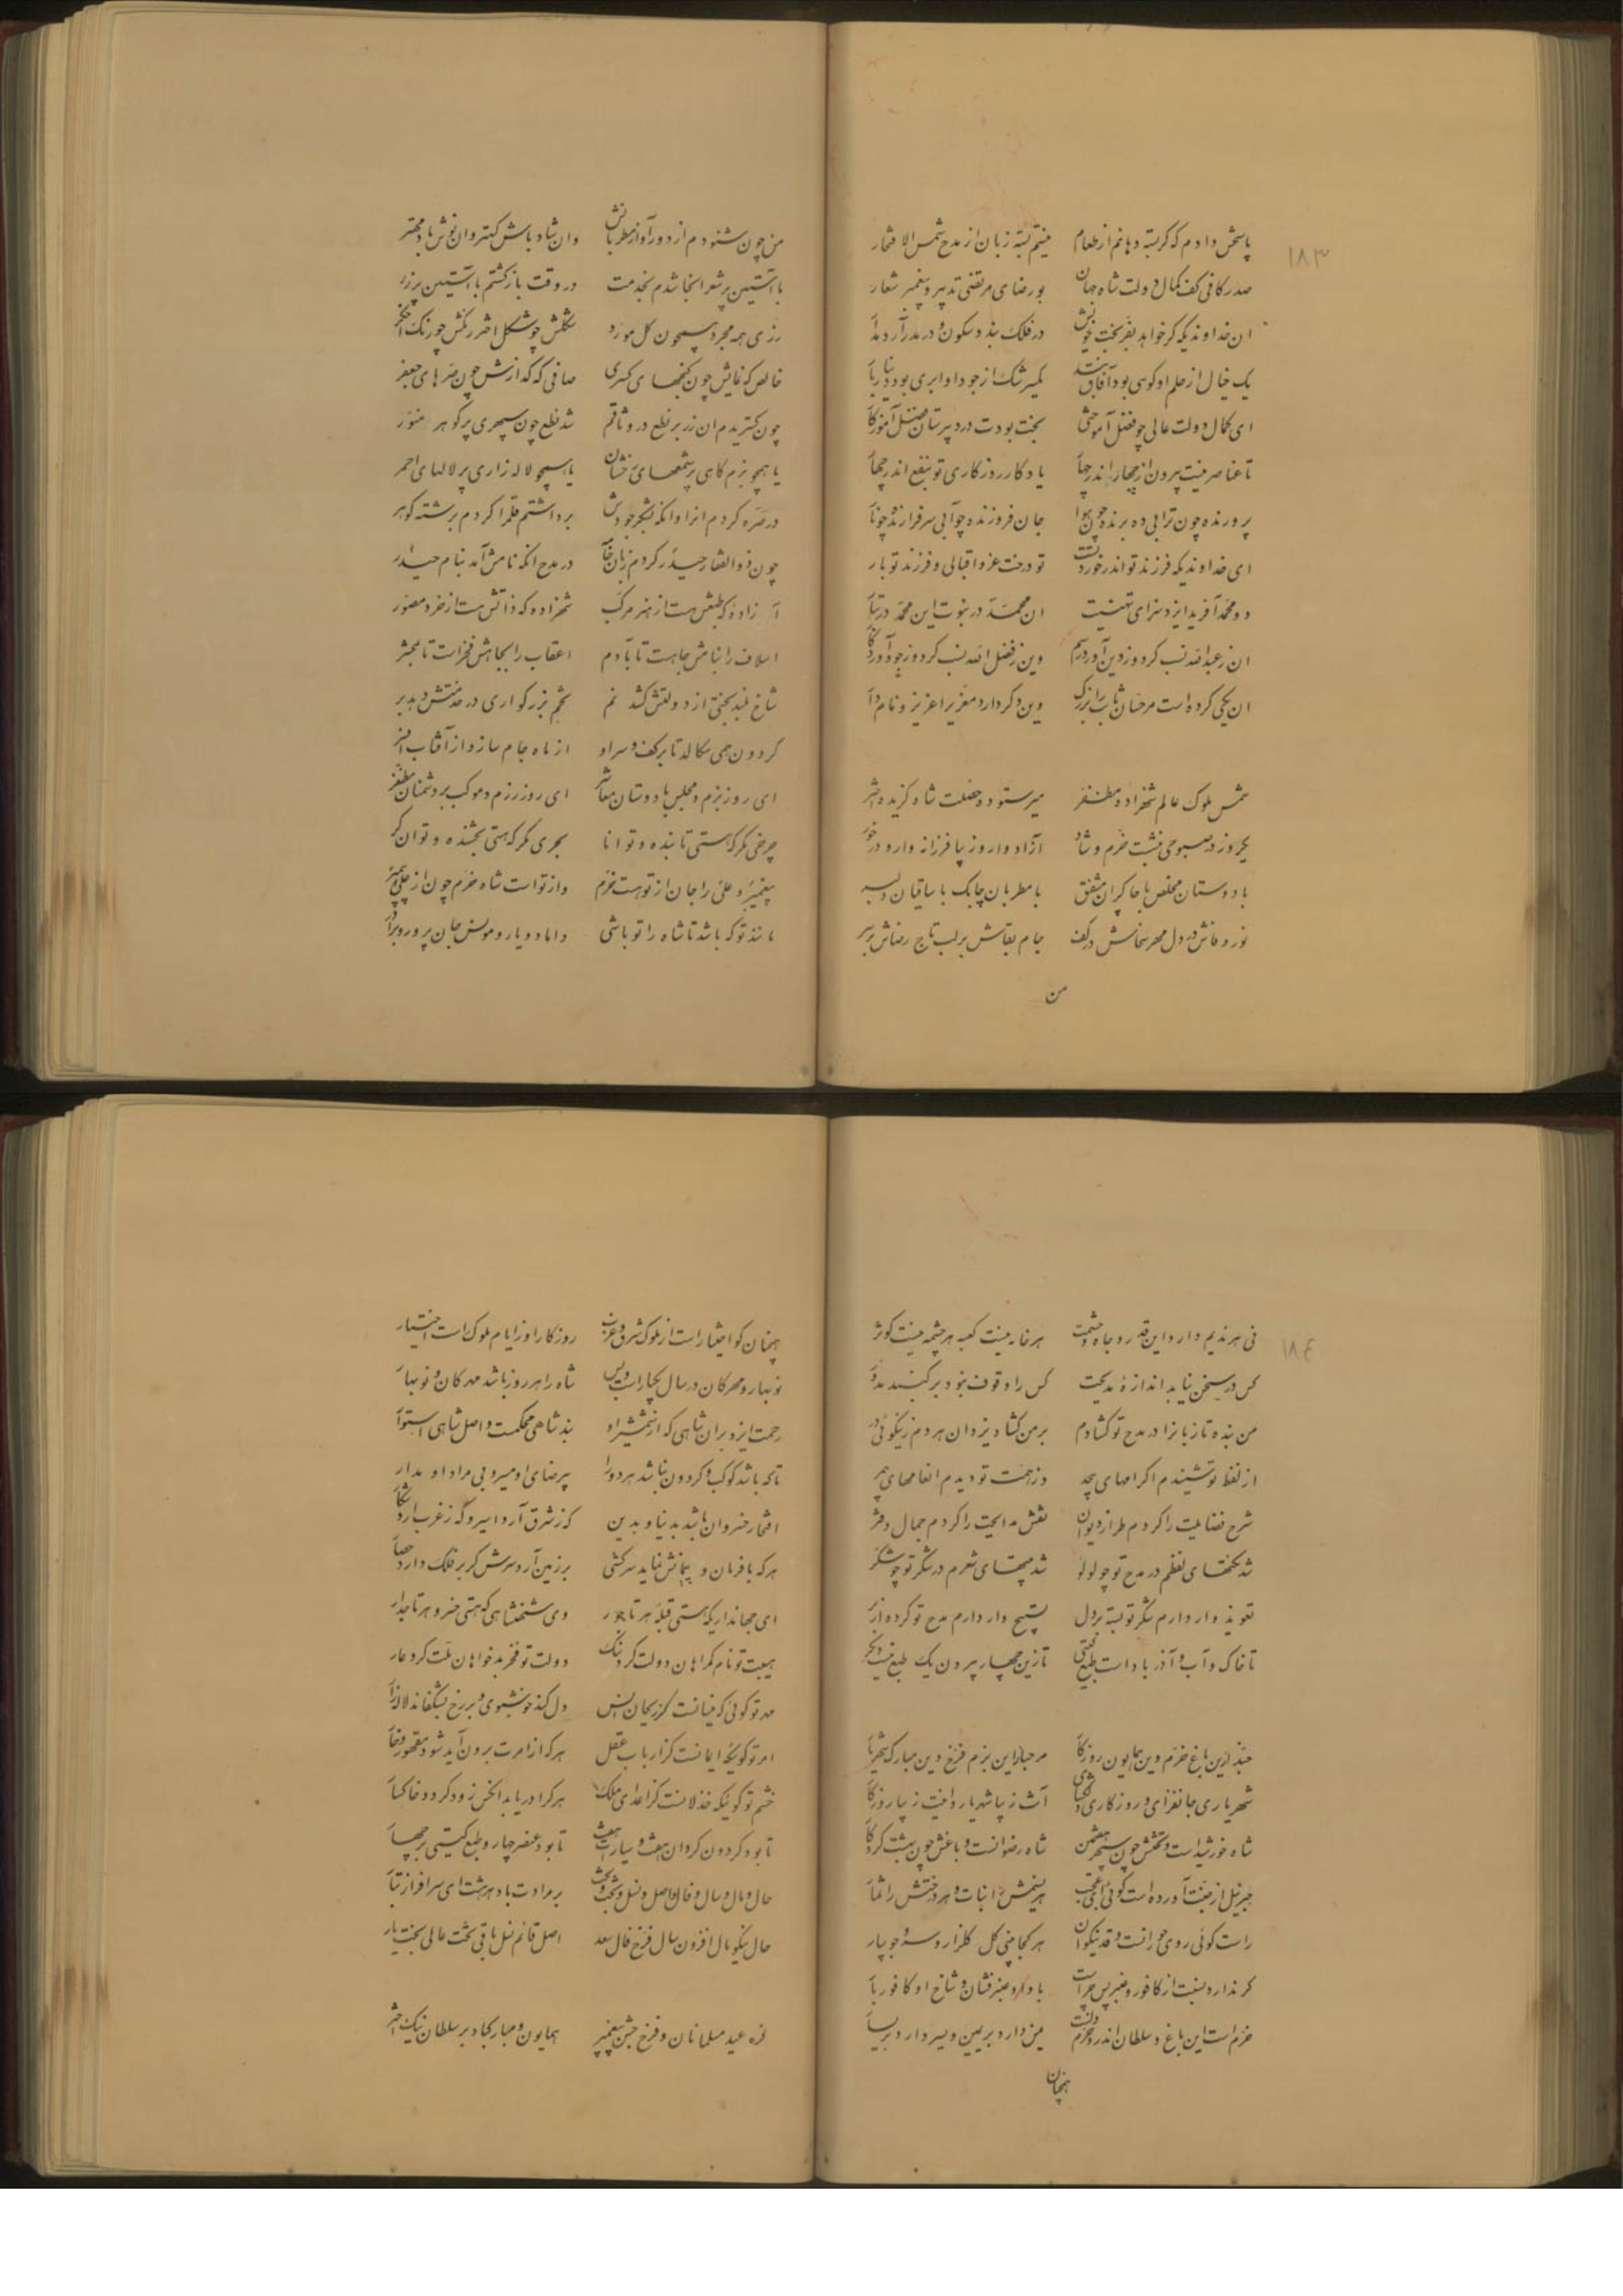 ۱۸۳
پاسخش دادم که گر بسته دهانم از طعام نیستم بسته زبان از مدح شمس الافتخار
صدر کافی کف کمال دولت شاه جهان بورضای مرتضی تدبیر و پیغمبر شعار
ان خداوندیکه گر خواهد بفر بخت خویش در فلک بندد سکون و در مدر آرد مدار
یک خیال از حلم او کوهی بود آفاق یک سرشک از جود او ابری بود دریا بار
ای کمال دولت عالی چو فضل آموختی بخت بودت در دبیرستان فضل آموزگار
تا عناصر نیست بیرون از چهار اندر جهان یادگار روزگاری تو بنفع اندر چهار
پرورنده چون ترابی ده برنده چون هوا جان فروزنده چو آبی سرفرازنده چو نار
ای خداوندیکه فرزند تو اندر خورد تست تو درخت عز و اقبالی و فرزند تو بار
دو محمد آفرید ایزد سزای تهنیت ان محمد در نبوت این محمد در تبار
ان ز عبدالله نسب کرد و ز دین آورد رسم وین ز فضل الله نسب کرد و ز جود آورد کار
ان یکی کرده است مر حسان ثابت را بزرگ وین دگر دارد معزیرا عزیز و نامدار
شمس ملوک عالم شهزاده مظفر میر ستوده خصلت شاه گزیده اختر
یکروز در صبوحی بنشست خرم و شاد آزاده وار و زیبا فرزانه وار و در خور
با دوستان مخلص با چاکران مشفق با مطربان چابک با ساقیان دلبر
نور وفاش در دل مهر سخاش در کف جام بقاش بر لب تاج رضاش بر سر
من
من چون شنودم از دور آواز مطربانش وان شاد باش کهتر وان نوش باد مهتر
با آستین پر شعر انجا شدم بخدمت در وقت باز گشتم با آستین پر زر
زری همه مجرد همچون گل مورد شکلش چو شکل اختر رنگش چو رنگ اخگر
خالص که نمایش چون گنجهای کسری صافی که گدازش چون صرهای جعفر
چون گستریدم ان زر بر نطع در وثاقم شد نطع چون سپهری پر گوهر منور
یا همچو بزم گاهی پر شمعهای رخشان یا همچو لاله زاری پر لالهای احمر
در صره کردم انرا وانگه بشکر جودش برداشتم قلم را کردم برشته گوهر
چون ذوالفقار حیدر کردم زبان خامه در مدح انکه نامش آمد بنام حیدر
آزاده که طبعش هست از هنر مرکب شهزاده که ذاتش هست از خرد مصور
اسلاف را بنامش جاهست تا بآدم اعقاب را بجاهش فخراست تا بمحشر
شاخ بلند بختی از دولتش کشد نم تخم بزرگواری در خدمتش دهد بر
گردون همی سگالد تا بر کف و سر او از ماه جام سازد از آفتاب افسر
ای روز بزم و مجلس با دوستان معاشر ای روز رزم و موکب بر دشمنان مظفر
چرخی مگر که هستی تابنده و توانا بحری مگر که هستی بخشنده و توانگر
پیغمبر و علی را جان از تو هست خرم واز تو است شاه خرم چون از علی پیمبر
مانند تو که باشد تا شاه را تو باشی داماد و یار و مونس جان پرور و برادر
۱۸٤
نی هر ندیم دارد این قدر و جاه و حشمت هر خانه نیست کعبه هر چشمه نیست کوثر
کس در سخن نیابد اندازهٔ مدیحت کس را وقوف نبود بر گنبد مدور
من بنده تا زبانرا در مدح تو گشادم بر من گشاد یزدان هر دم ز نیکوئی در
از لفظ تو شنیدم اکرامهای بیحد وز همت تو دیدم انعامهای بیمر
شرح فضایلت را کردم طراز دیوان نقش مدایحت را کردم جمال دفتر
شد نکتهای نظمم در مدح تو چو لولو شد بیتهای شعرم در شکر تو چو شکر
تعویذ وار دارم شکر تو بسته بر دل تسبیح وار دارم مدح تو کرده از بر
تا خاک و آب و آذر باد است طبع گیتی تا زین چهار بیرون یک طبع نیست دیگر
حبذا این باغ خرم وین همایون روزگار مرحبا این بزم فرخ وین مبارک شهریار
شهریاری جانفزای و روزگاری دلگشای آنت زیبا شهریار و اینت زیبا روزگار
شاه خورشیداست و تختش چون سپهر هفتمین شاه رضوانست و باغش چون بهشت کردگار
جبرئیل از جنت آورده است گوئی ای عجب هر نهالش را نبات و هر درختش را ثمار
راست گوئی روی حورانست و قد نیکوان هر کجا بینی گل گلزار و سرو جویبار
گر ندارد نسبت از کافور و عنبر پس چراست باد او عنبر فشان و شاخ او کافور بار
خرم است این باغ و سلطان اندرو خرم دلست یمن دارد بر یمین و یسر دارد بر یسار
همچنان
همچنان کو اختیار است از ملوک شرق و غرب روزگار او ز ایام ملوک است اختیار
نوبهار و مهرگان در سال یکبار است و بس شاه را هر روز باشد مهرگان و نوبهار
رحمت ایزد بران شاهی که از شمشیر او بند شاهی محکمست و اصل شاهی استوار
تا که باشد کوکب و گردون نباشد هر دو را بی رضای او مسیر و بی مراد او مدار
افتخار خسروان باشد بدنیا و بدین که ز شرق آرد اسیر و گه ز غرب آرد شکار
هر که با فرمان و پیمانش نماید سرکشی بر زمین آرد سرش گر بر فلک دارد حصار
ای جهانداریکه هستی قبله هر تاجور وی شهنشاهی که هستی خسرو هر تاجدار
هیبت تو نام گمراهان دولت کرد ننگ دولت تو فخر بدخواهان ملت کرد عار
مهر تو گوئی که نیسانست کز ریحان انس دل کند خوشبوی و بر رخ بشکفاند لاله زار
امر تو گوئیکه ایمانست کز ارباب عقل هر که از امرت برون آید شود مقهور و خوار
خشم تو گوئیکه خذلانست کز اعدای ملک هر کرا دریابد انکس زود گردد خاکسار
تا بود گردون گردان هفت و سیارات هفت تا بود عنصر چهار و طبع گیتی بر چهار
حال و مال و سال و فال و اصل و نسل و بخت و تخت بر مرادت باد هر هشت ای سرافراز تبار
حال نیکو مال افزون سال فرخ فال سعد اصل قائم نسل باقی تخت عالی بخت یار
غره عید مسلمانان و فرخ جشن پیغمبر همایون و مبارکباد بر سلطان نیک اختر